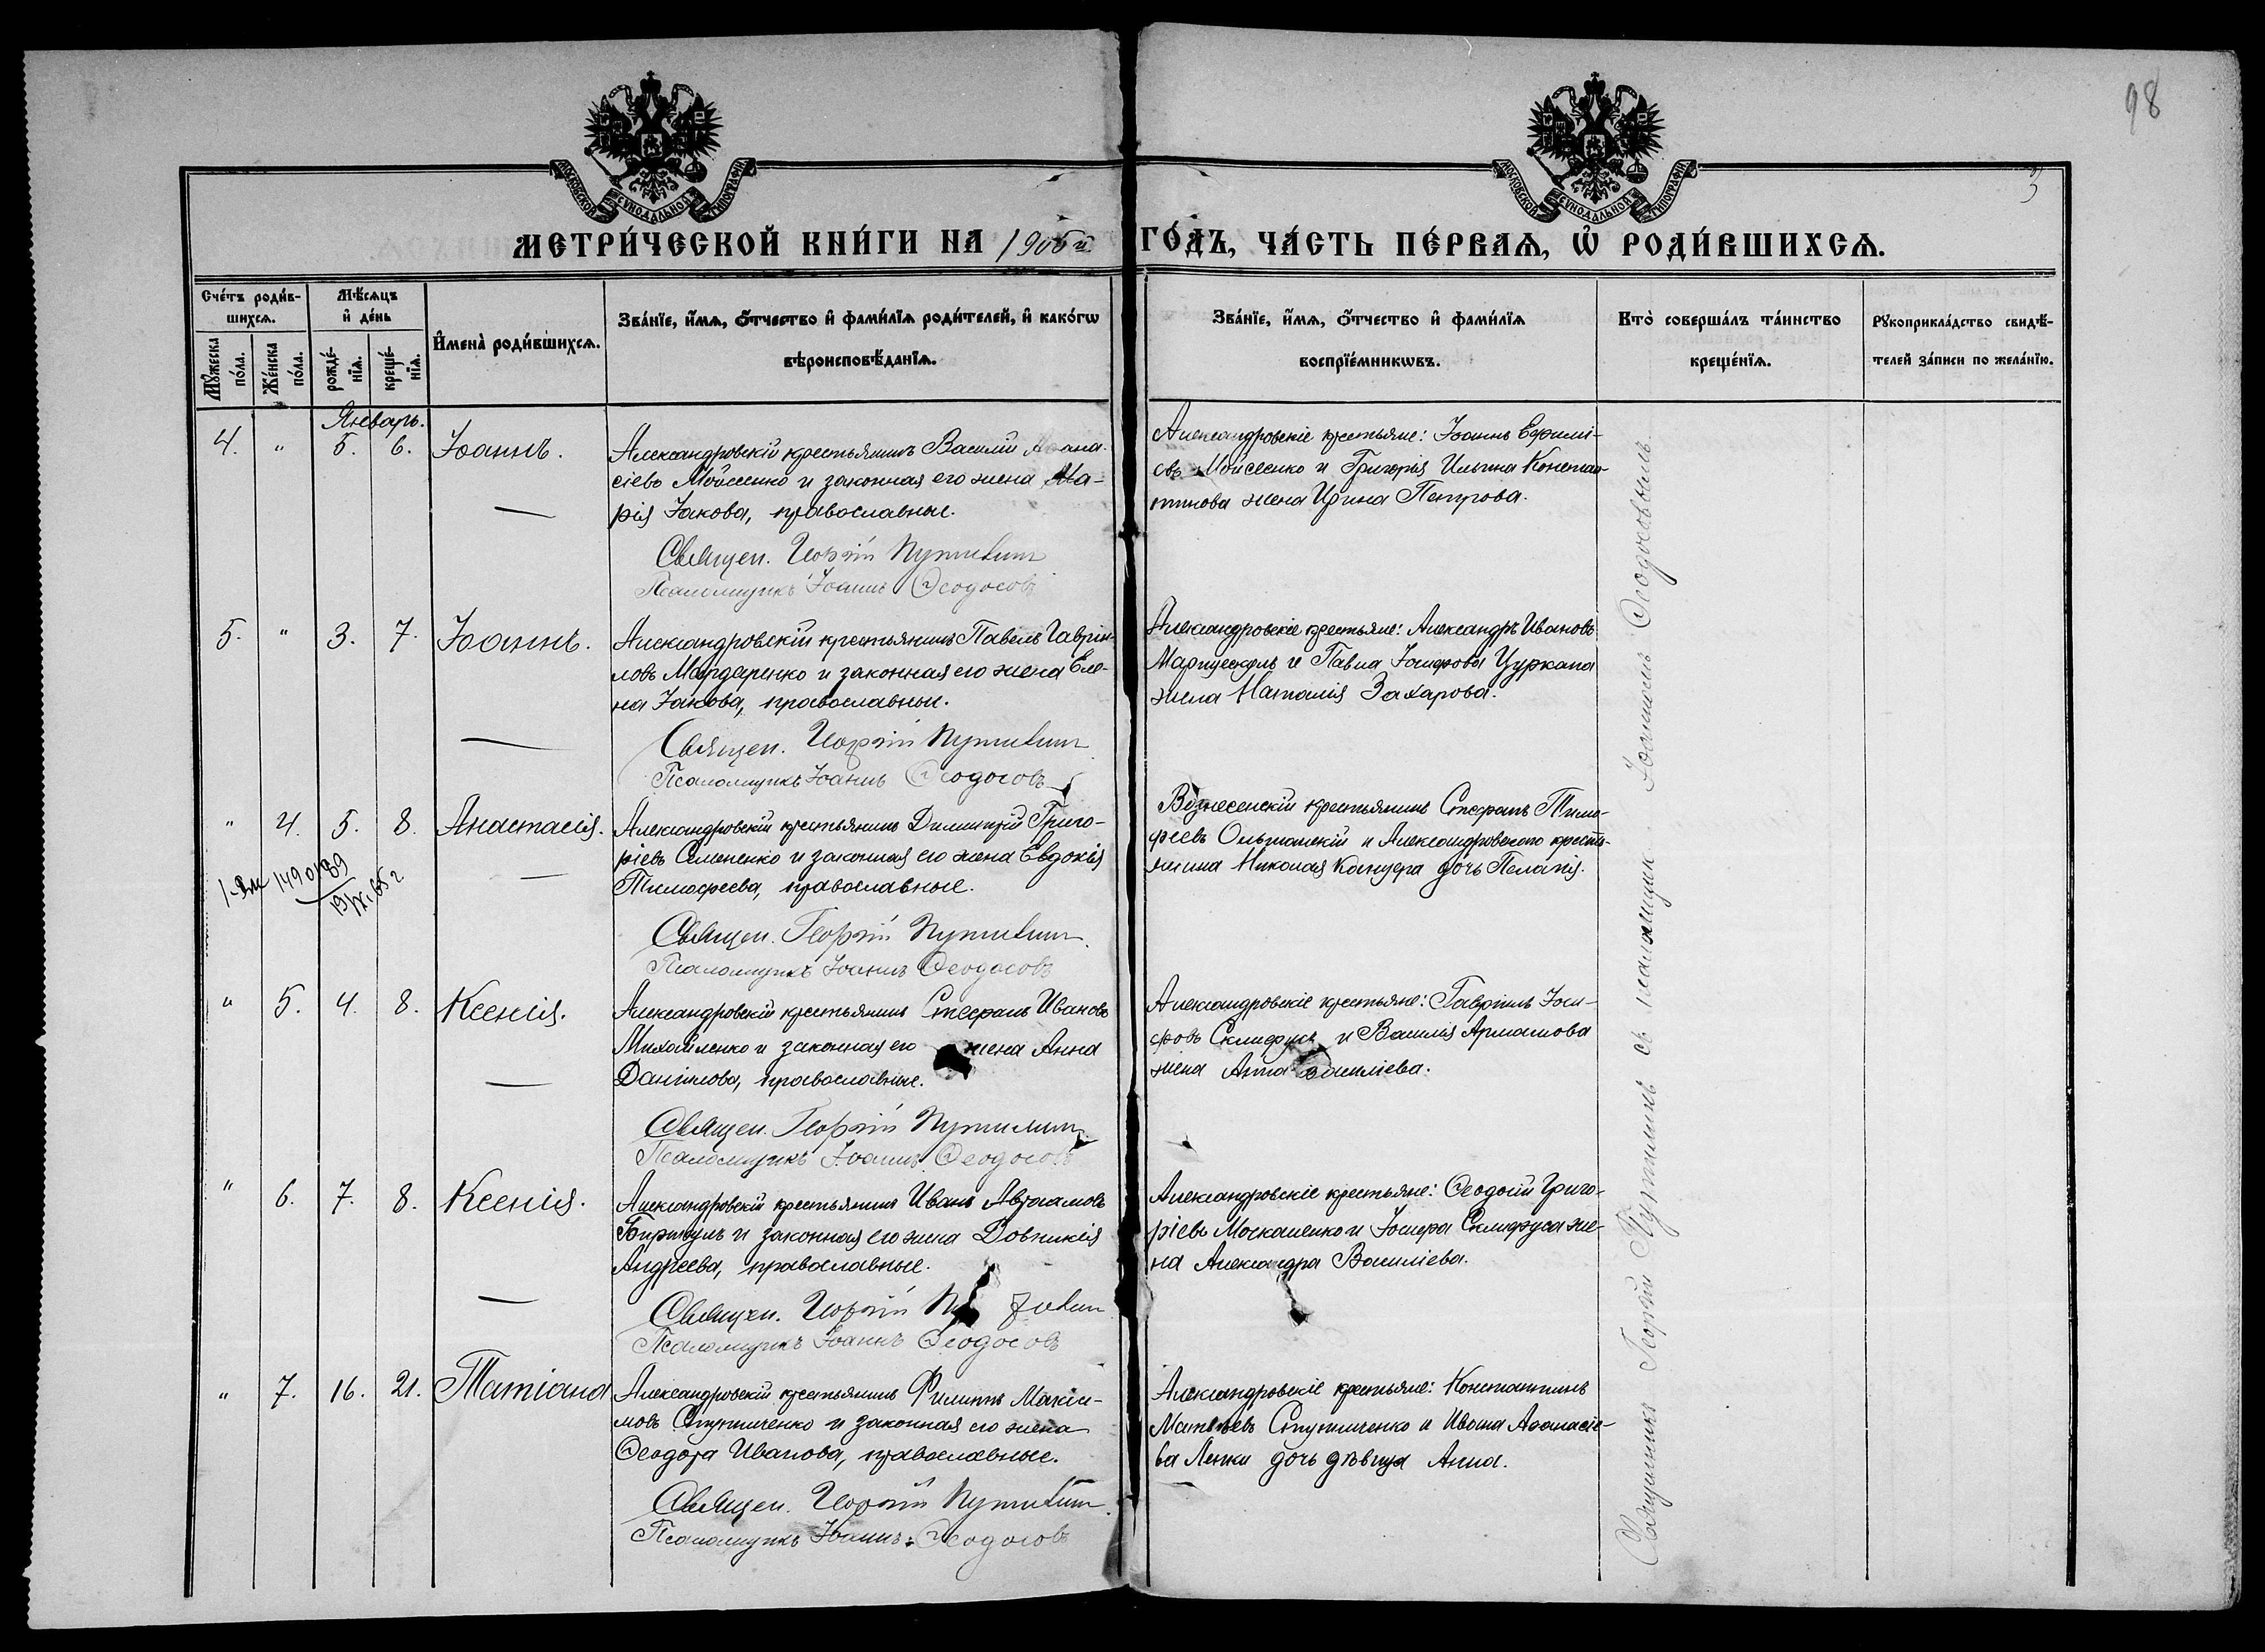 98
3
МОСКОВСКОЙ СУНОДАЛЬНОЙ ТИПОГРАФІИ
МОСКОВСКОЙ СУНОДАЛЬНОЙ ТИПОГРАФІИ
МЕТРИ́ЧЕСКОЙ КНИ́ГИ НА 1906й ГО́ДЪ, ЧА́СТЬ ПЕ́РВАЯ, Ѡ҆ РОДИ́ВШИХСЯ.
Сче́тъ роди́в-
шихсѧ.
Мѣ́сѧцъ
и҆ де́нь
Мꙋ́жеска
по́ла.
Же́нска
по́ла.
рожде́-
нїѧ.
креще́-
нїѧ.
И҆мена̀ роди́вшихсѧ.
Зва́нїе, и҆́мѧ, ѻ҆́тчество и҆ фами́лїѧ роди́телей, и҆ како́гѡ
вѣроисповѣ́данїѧ.
Зва́нїе, и҆́мѧ, ѻ҆́тчество и҆ фами́лїѧ
воспрїе́мникѡвъ.
Кто̀ соверша́лъ та́инство
креще́нїѧ.
Рꙋкоприкла́дство свидѣ́-
телей за́писи по жела́нїю.
Январь.
4. " 5. 6. Іоаннъ.
Александровскій крестьянинъ Василій Аѳана-
сіевъ Мойсеенко и законная его жена Ма-
рія Іакова, православные.
Священ. Георгій Путилин
Псаломщикъ Іоаннъ Ѳеодосовъ
Александровскіе крестьяне: Іоаннъ Евфимі-
евъ Мойсеенко и Григорія Ильина Констан-
тинова жена Ирина Петрова.
5. " 3. 7. Іоаннъ.
Александровскій крестьянинъ Павелъ Гавріи-
ловъ Мардаренко и законная его жена Еле-
на Іакова, православные.
Священ. Георгій Путилин
Псаломщикъ Іоаннъ Ѳеодосовъ
Александровскіе крестьяне: Александръ Ивановъ
и Павла Іосифова Цуркана
жена Наталія Захарова.
" 4. 5. 8. Анастасія.
1490189
Александровскій крестьянинъ Димитрій Григо-
ріевъ Семененко и законная его жена Евдокія
Тимофеева, православные.
Священ. Георгій Путилин
Псаломщикъ Іоаннъ Ѳеодосовъ
Вознесенскій крестьянинъ Стефанъ Тимо-
феевъ Ольшанскій и Александровского кресть-
янина Николая Канцера дочь Пелагія.
" 5. 4. 8. Ксенія.
Александровскій крестьянинъ Стефанъ Ивановъ
Михайленко и законная его жена Анна
Даніилова, православные.
Священ. Георгій Путилин
Псаломщикъ Іоаннъ Ѳеодосовъ
Александровскіе крестьяне: Гавріилъ Іоси-
фовъ Склифусъ и Василія Армашова
жена Анна Василіева.
" 6. 7. 8. Ксенія.
Александровскій крестьянинъ Иванъ Авраамовъ
и законная его жена Довникія
Андреева, православные.
Священ. Георгій
Псаломщикъ Іоаннъ Ѳеодосовъ
Александровскіе крестьяне: Ѳеодосій Григо-
ріевъ Москаленко и Іосифа Склифуса же-
на Александра Василіева.
" 7. 16. 21. Татіана
Александровскій крестьянинъ Филиппъ Максі-
мовъ Ступниченко и законная его жена
Ѳеодора Иванова, православные.
Священ. Георгій Путилин
Псаломщикъ Іоаннъ Ѳеодосовъ
Александровскіе крестьяне: Константинъ
Матвѣевъ Ступниченко и Ивана Аѳанасіе-
ва Ленки дочь дѣвица Анна.
Священникъ Георгій Путилинъ съ псаломщик. Іоанномъ Ѳеодосовымъ.